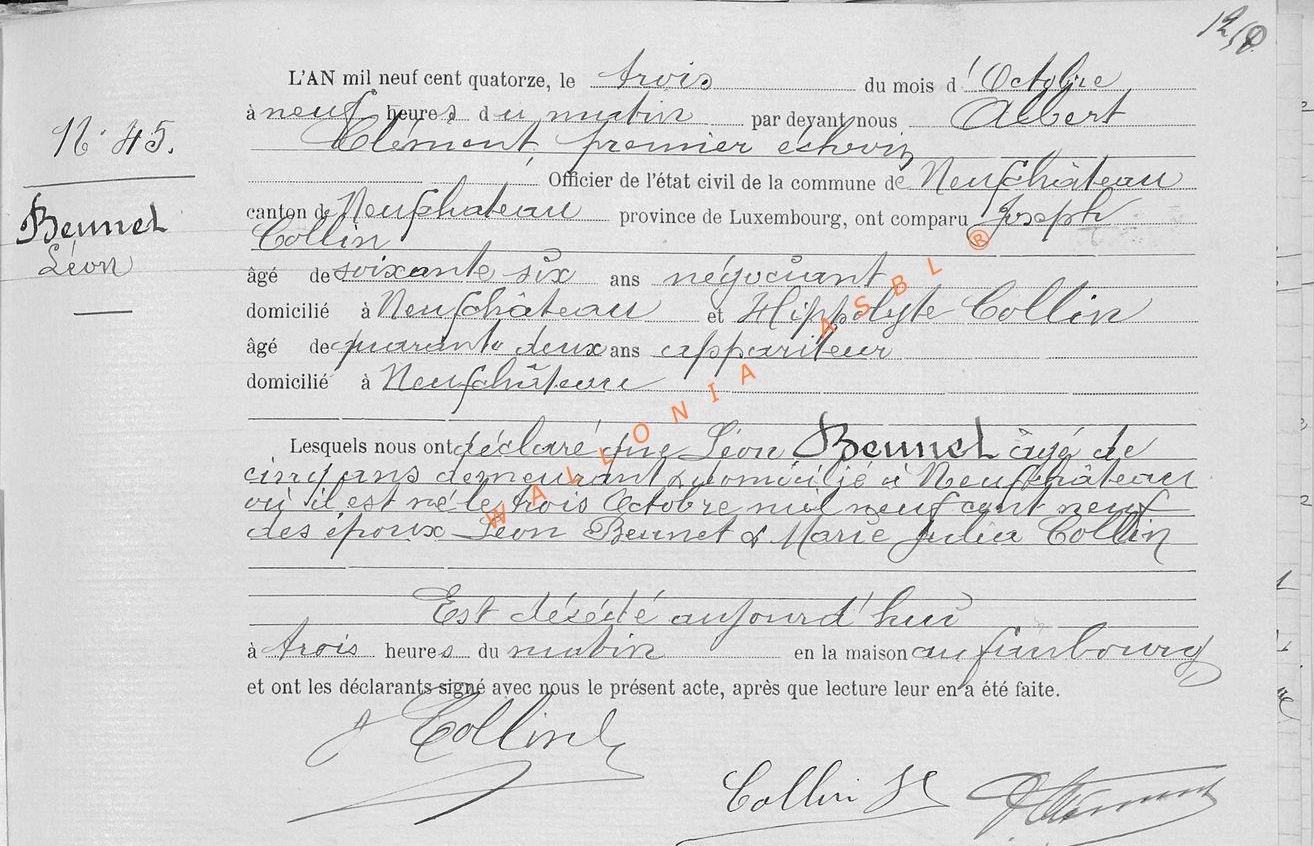 L'AN mil neuf cent quatorze, le trois du mois d'Octobre
à neuf heures du matin par devant nous Albert
Clément, premier échevin
Officier de l'état civil de la commune de Neufchâteau
canton de Neufchateau province de Luxembourg, ont comparu Joseph
Collin
âgé de soixante six ans négociant
domicilié à Neufchâteau et Hippolyte Collin
âgé de quarante deux ans appariteur
domicilié à Neufchâteau
N° 45.
Beunet
Léon
Lesquels nous ont déclaré que Léon Beunet âgé de
cinq ans demeurant & domicilié à Neufchâteau
où il est né le trois Octobre mil neuf cent neuf
des époux Léon Beunet & Marie Julia Collin
Est décédé aujourd'hui
à trois heures du matin en la maison au faubourg
et ont les déclarants signé avec nous le présent acte, après que lecture leur en a été faite.
J Collin
Collin H
A Clément
WALLONIA ASBL ®